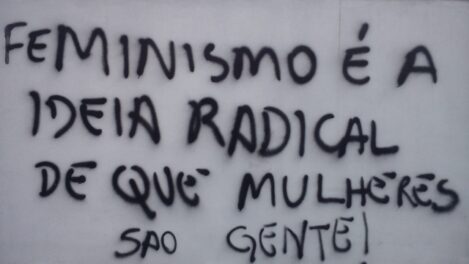 FEMINISMO É A
IDEIA RADICAL
DE QUE MULHERES
SAO GENTE!